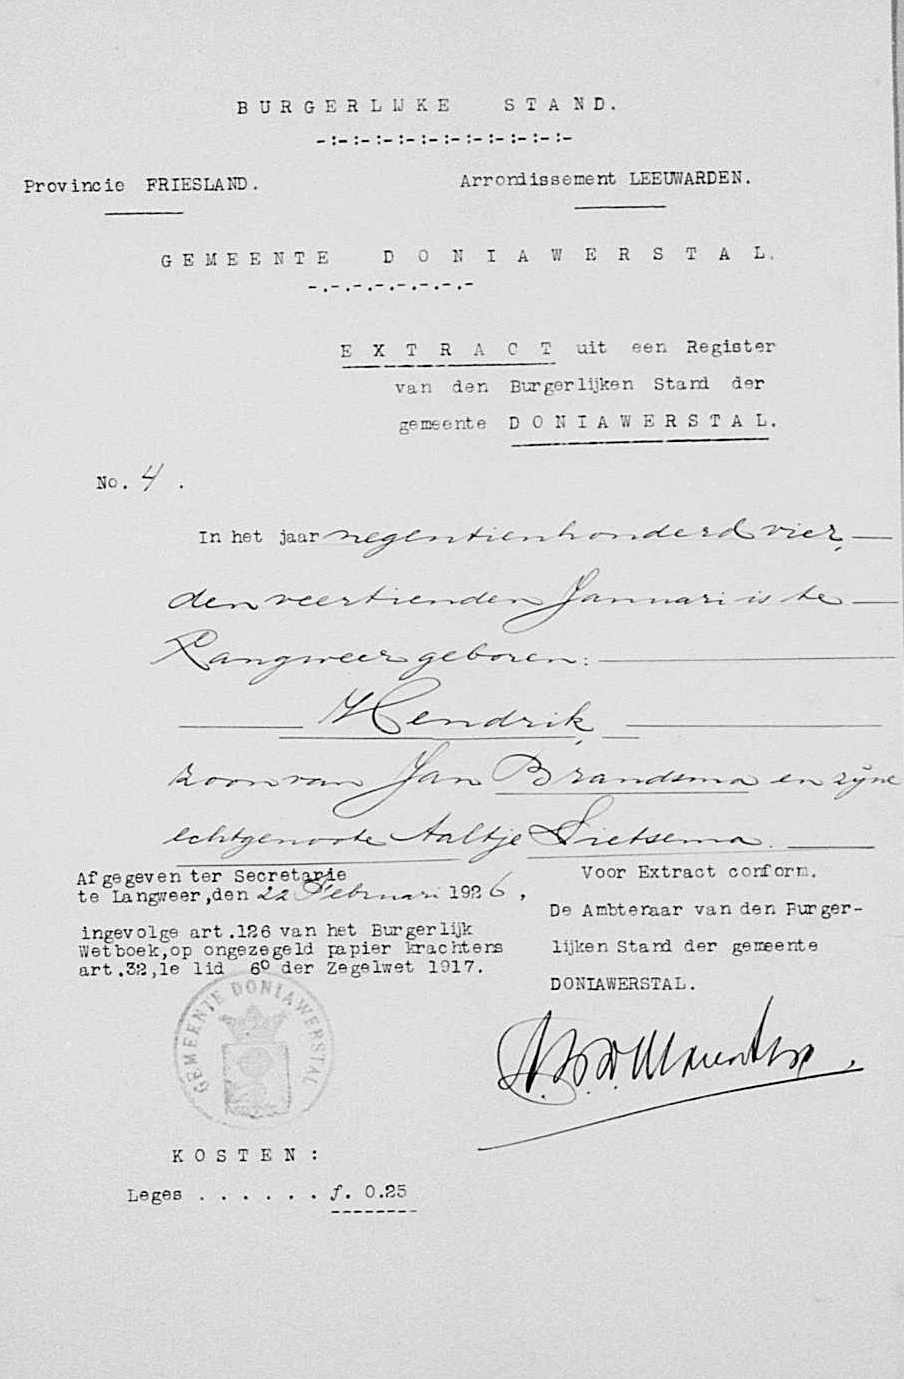 BURGERLIJKE STAND.
-:-:-:-:-:-:-:-:-:-:-:-
Provincie FRIESLAND. Arrondissement LEEUWARDEN.
GEMEENTE DONIAWERSTAL.
-.-.-.-.-.-.-.-
EXTRACT uit een Register
van den Burgerlijken Stand der
gemeente DONIAWERSTAL.
No. 4 .
In het jaar negentienhonderd vier,
den veertienden Januari is te
Langweer geboren:
Hendrik,
zoon van Jan Brandsma en zijne
echtgenoote Aaltje Sietsema.
Afgegeven ter Secretarie
te Langweer,den 22 Februari 1926,
ingevolge art.126 van het Burgerlijk
Wetboek,op ongezegeld papier krachtens
art.32,1e lid 6º der Zegelwet 1917.
Voor Extract conform.
De Ambtenaar van den Burger-
lijken Stand der gemeente
DONIAWERSTAL.
GEMEENTE DONIAWERSTAL
KOSTEN:
Leges . . . . . . f. 0.25